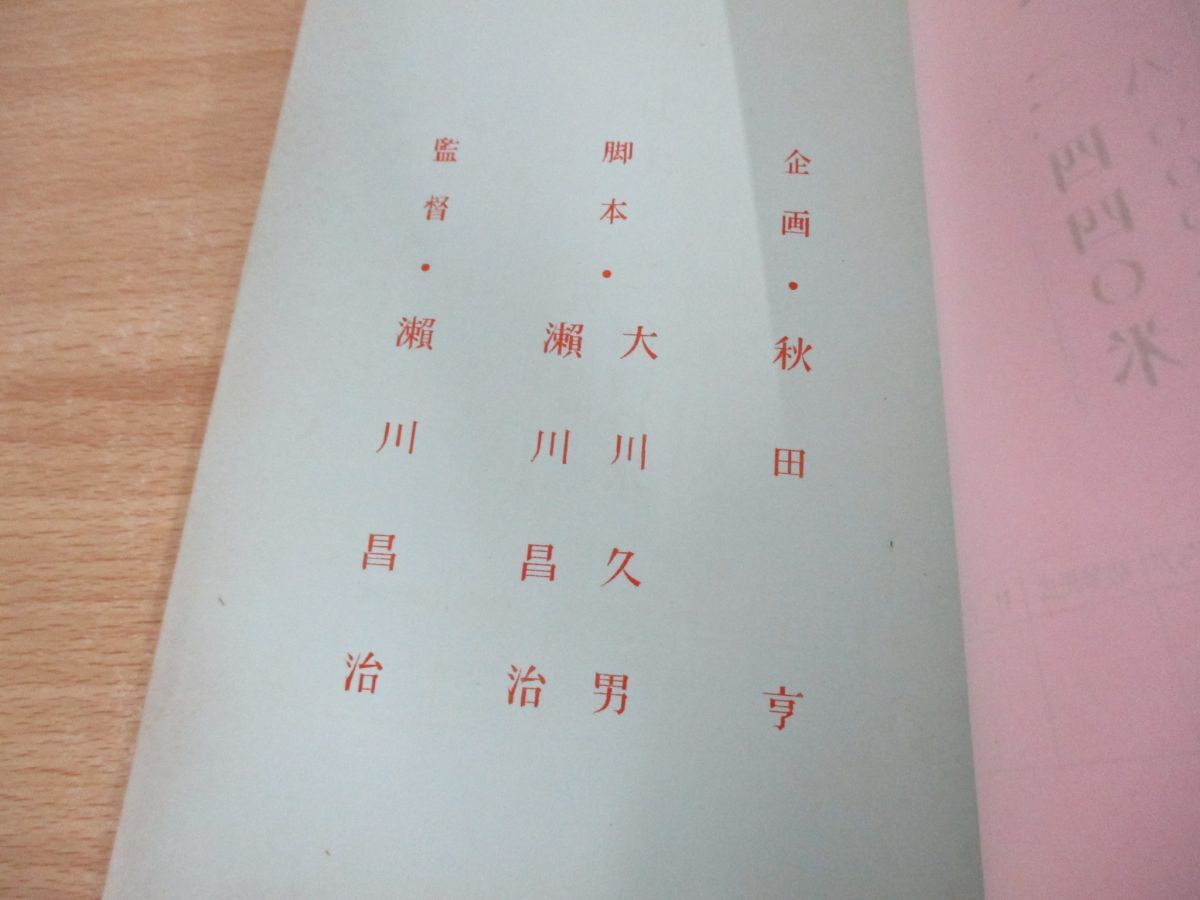 企画・秋田亨
脚本・大川久男
瀬川昌治
監督・瀬川昌治